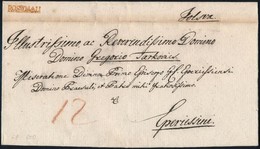 Jolsva
Illustrissimo ac Reverendissimo Domino
Domino Gregorio Tarkovics
Miseratione Divina Primo Episcopo Gr. Eperiessiensi
Domino Domino Praesuli et Patri mihi
12
Eperiessini